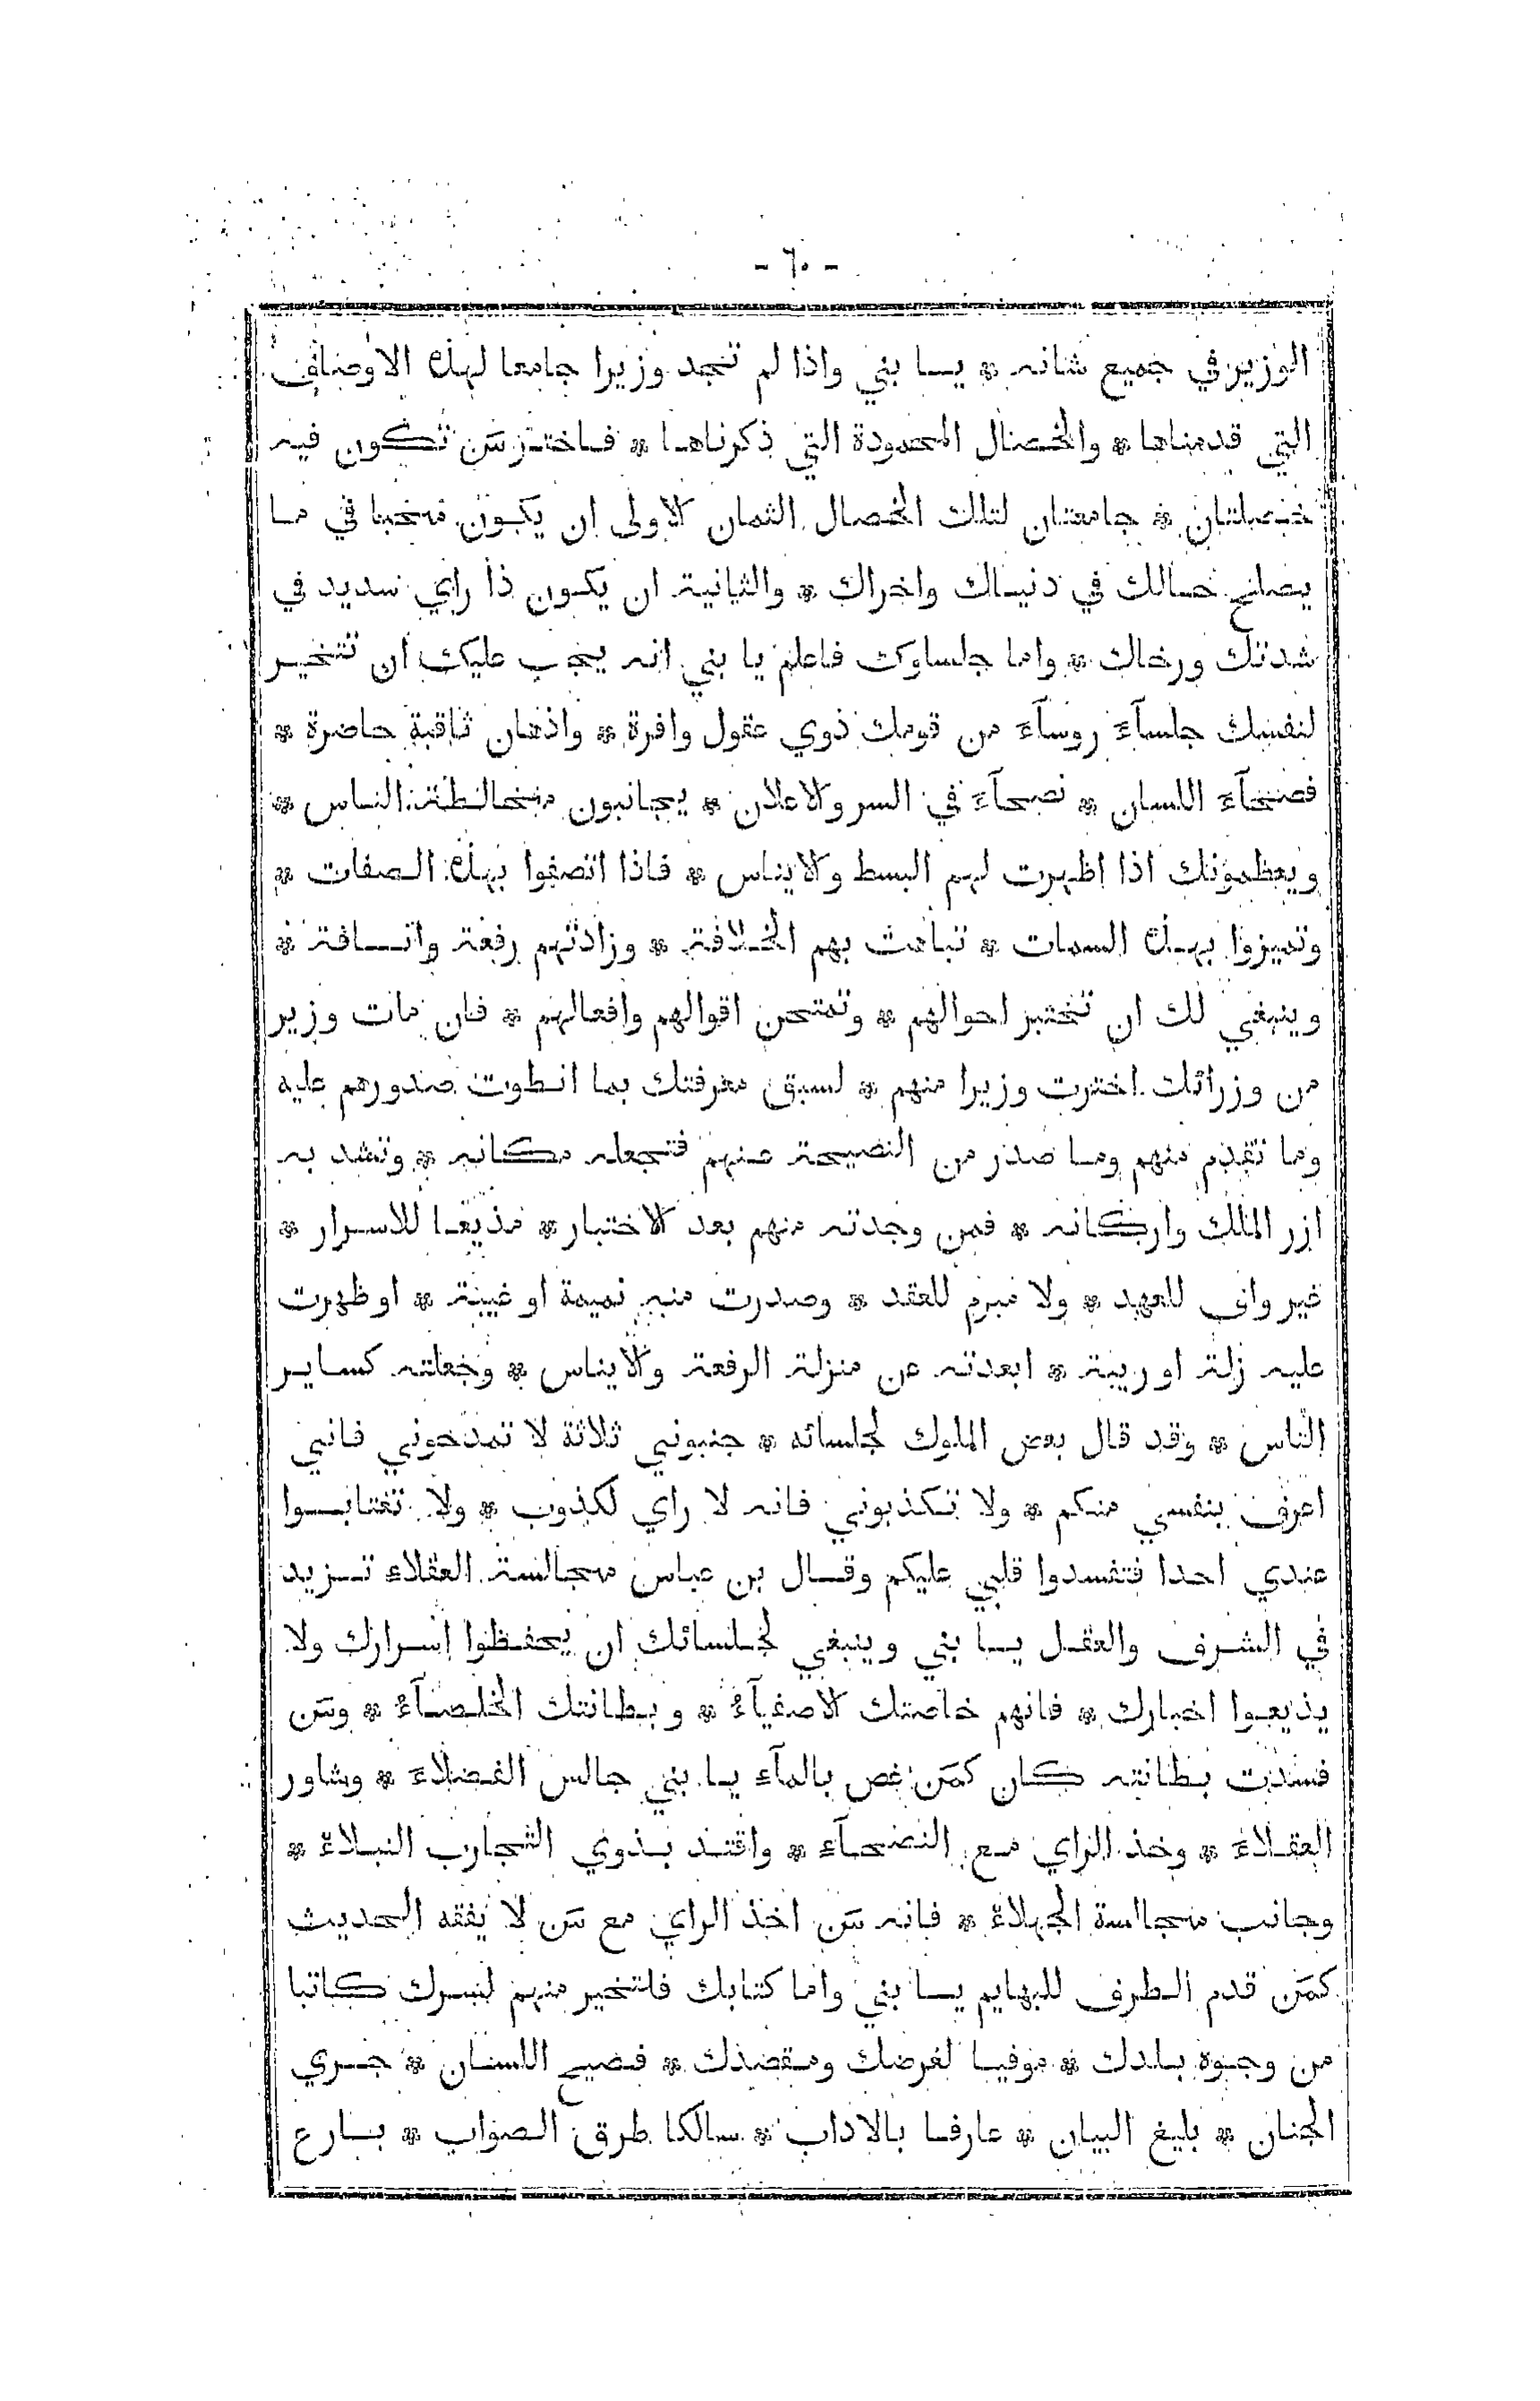 - ٦٠ -
الوزير في جميع شانه * يا بني واذا لم تجد وزيرا جامعا لهذه الاوصاف
التي قدمناها * والخصال المحمودة التي ذكرناها * فاختر مَن تكون فيه
خصلتان * جامعتان لتلك الخصال الثمان الاولى ان يكون محبا في ما
يصلح حالك في دنياك واخراك * والثانية ان يكون ذا راي سديد في
شدتك ورخاك * واما جلساوك فاعلم يا بني انه يجب عليك ان تتخير
لنفسك جلسآء روسآء من قومك ذوي عقول وافرة * واذهان ثاقبة حاضرة *
فصحآء اللسان * نصحآء في السر والاعلان * يجانبون مخالطة الناس *
ويعظمونك اذا اظهرت لهم البسط والايناس * فاذا اتصفوا بهذه الصفات *
وتميزوا بهذه السمات * تباهت بهم الخلافة * وزادتهم رفعة وانافة *
وينبغي لك ان تختبر احوالهم * وتمتحن اقوالهم وافعالهم * فان مات وزير
من وزرائك اخترت وزيرا منهم * لسبق معرفتك بما انطوت صدورهم عليه
وما تقدم منهم وما صدر من النصيحة عنهم فتجعله مكانه * وتشد به
ازر الملك واركانه * فمن وجدته منهم بعد الاختبار * مذيعا للاسرار *
غير واف للعهد * ولا مبرم للعقد * وصدرت منه نميمة او غيبة * او ظهرت
عليه زلة او ريبة * ابعدته عن منزلة الرفعة والايناس * وجعلته كساير
الناس * وقد قال بعض الملوك لجلسائه * جنبوني ثلاثة لا تمدحوني فاني
اعرف بنفسي منكم * ولا تكذبوني فانه لا راي لكذوب * ولا تغتابوا
عندي احدا فتفسدوا قلبي عليكم وقال بن عباس مجالسة العقلاء تزيد
في الشرف والعقل يا بني وينبغي لجلسائك ان يحفظوا اسرارك ولا
يذيعوا اخبارك * فانهم خاصتك الاصفيآء * وبطانتك الخلصآء * ومَن
فسدت بطانته كان كمَن غص بالمآء يا بني جالس الفضلاء * وشاور
العقلاء * وخذ الراي مع النصحآء * واقتد بذوي التجارب النبلاء *
وجانب مجالسة الجهلاء * فانه مَن اخذ الراي مع مَن لا يفقه الحديث
كمَن قدم الطرف للبهايم يا بني واما كتابك فاتخير منهم لسرك كاتبا
من وجوه بلدك * موفيا لغرضك ومقصدك * فصيح اللسان * جري
الجنان * بليغ البيان * عارفا بالاداب * سالكا طرق الصواب * بارع